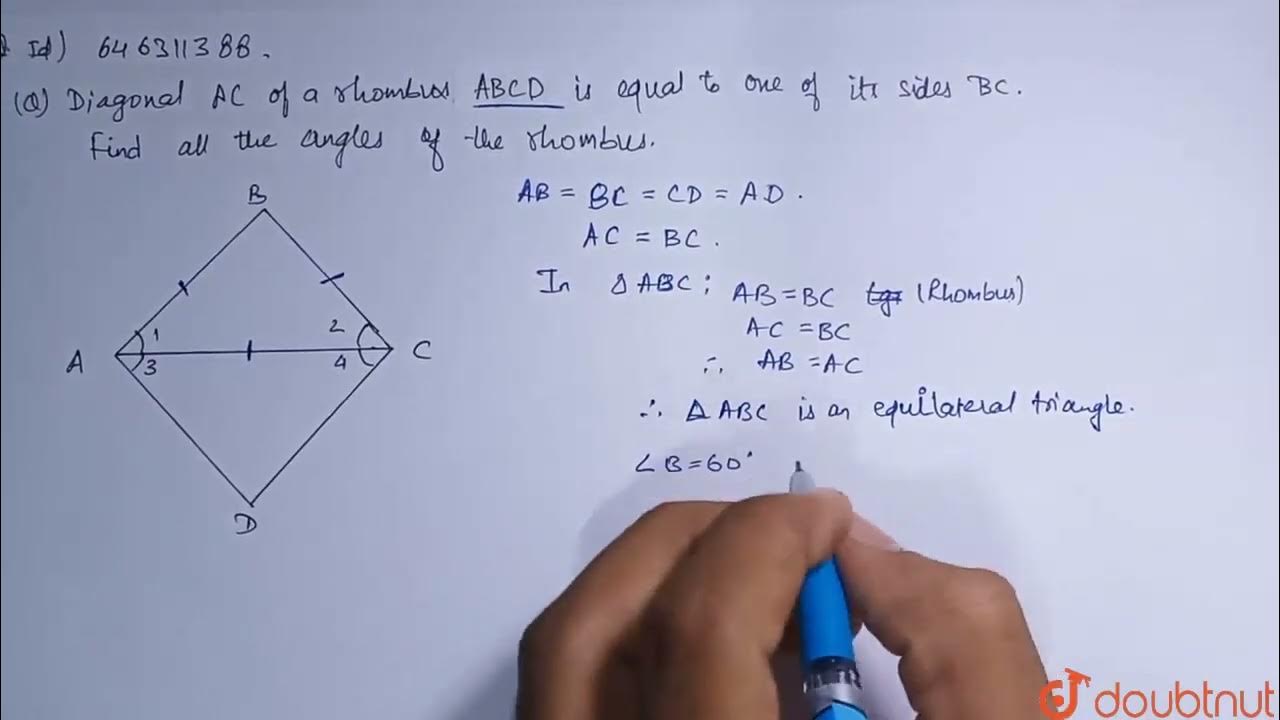 Id) 646311388.
(Q) Diagonal AC of a rhombus ABCD is equal to one of its sides BC.
Find all the angles of the rhombus.
B
AB = BC = CD = AD.
AC = BC.
In Δ ABC; AB = BC (Rhombus)
AC = BC
∴ AB = AC
1 2
A C
3 4
∴ ΔABC is an equilateral triangle.
∠B = 60°
D
doubtnut